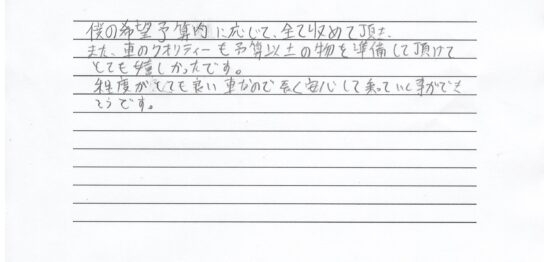 僕の希望予算内に応じて、全て収めて頂き、
また、車のクオリティーも予算以上の物を準備して頂けて
とても嬉しかったです。
程度がとても良い車なので長く安心して乗っていく事ができ
そうです。